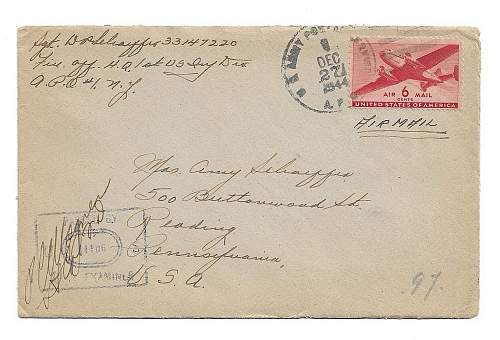 Sgt. D P Schaeffer 33147220
Fin. Off. H.Q. 1st US Inf Div
A.P.O #1, N.Y.
U.S. ARMY POSTAL
DEC
27
1944
A.P.O.
AIR 6 MAIL
CENTS
UNITED STATES OF AMERICA
AIRMAIL
Mrs. Amy Schaeffer
500 Buttonwood St.
Reading
Pennsylvania,
U.S.A.
BY
1106
EXAMINER
97.